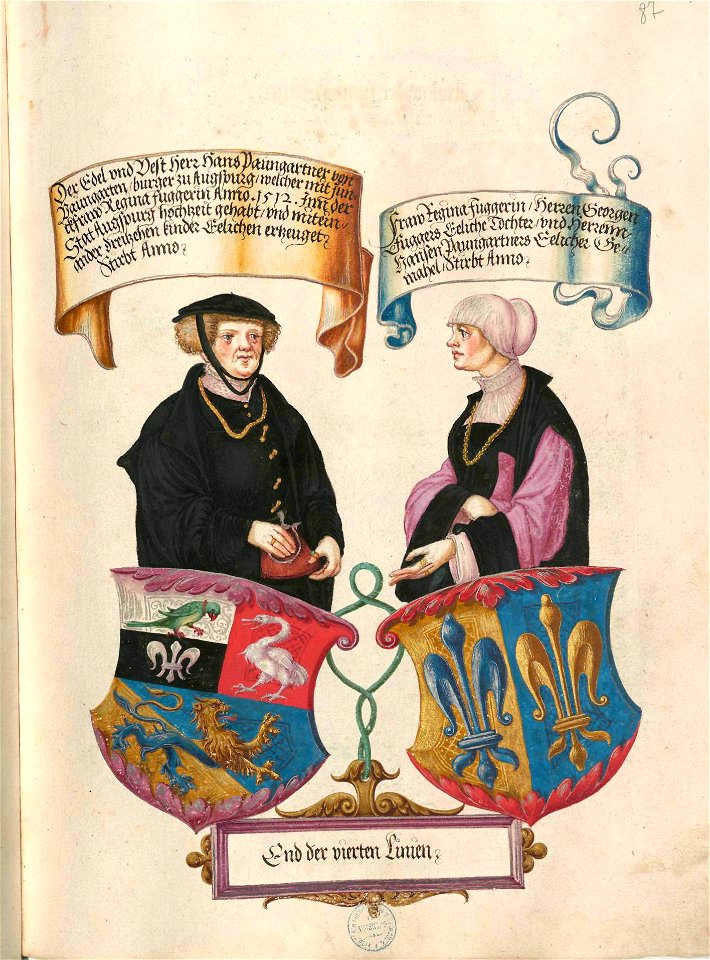 87
Der Edel vnd Vest Herr Hans Paungartner von
Paumgarten / burger zu Augspurg / welcher mit Jun,,
ckfraw Regina Fuggerin Anno. 1512. Inn der
Stat Augspurg hochzeit gehabt / vnd mit ein,,
ander dreyzehen kinder Eelichen erzeuget
Stirbt Anno
Fraw Regina Fuggerin / Herren Georgen
Fuggers Eeliche Tochter / vnd Herren
Hansen Paumgartners Eelicher Ge,,
mahel / Stirbt Anno
End der vierten Linien